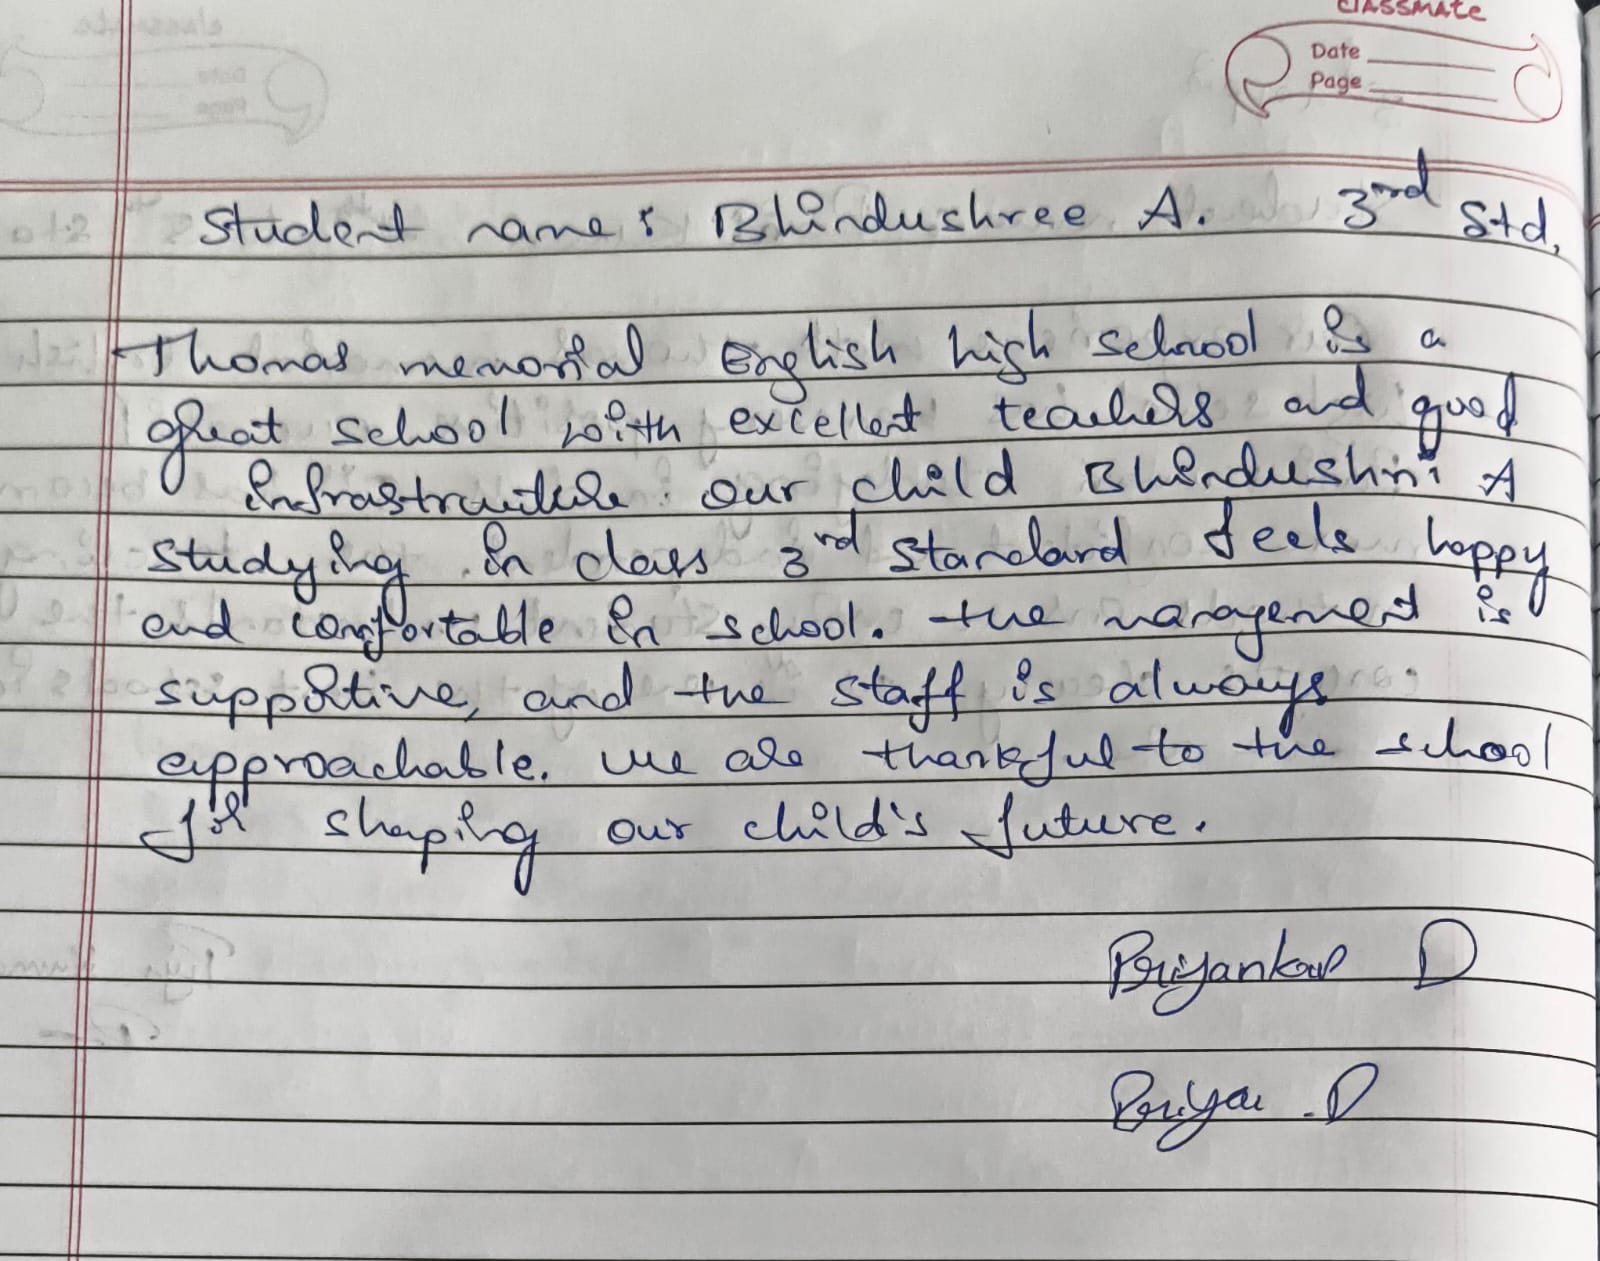 classmate
Date
Page
Student name : Bhindushree A. 3rd Std,
Thomas memorial English high school is a
great school with excellent teachers and good
infrastructure. our child Bhindushri A
studying in class 3rd standard feels happy
and comfortable in school. the management is
supportive, and the staff is always
approachable. we are thankful to the school
for shaping our child's future.
Priyanka D
Priya .D